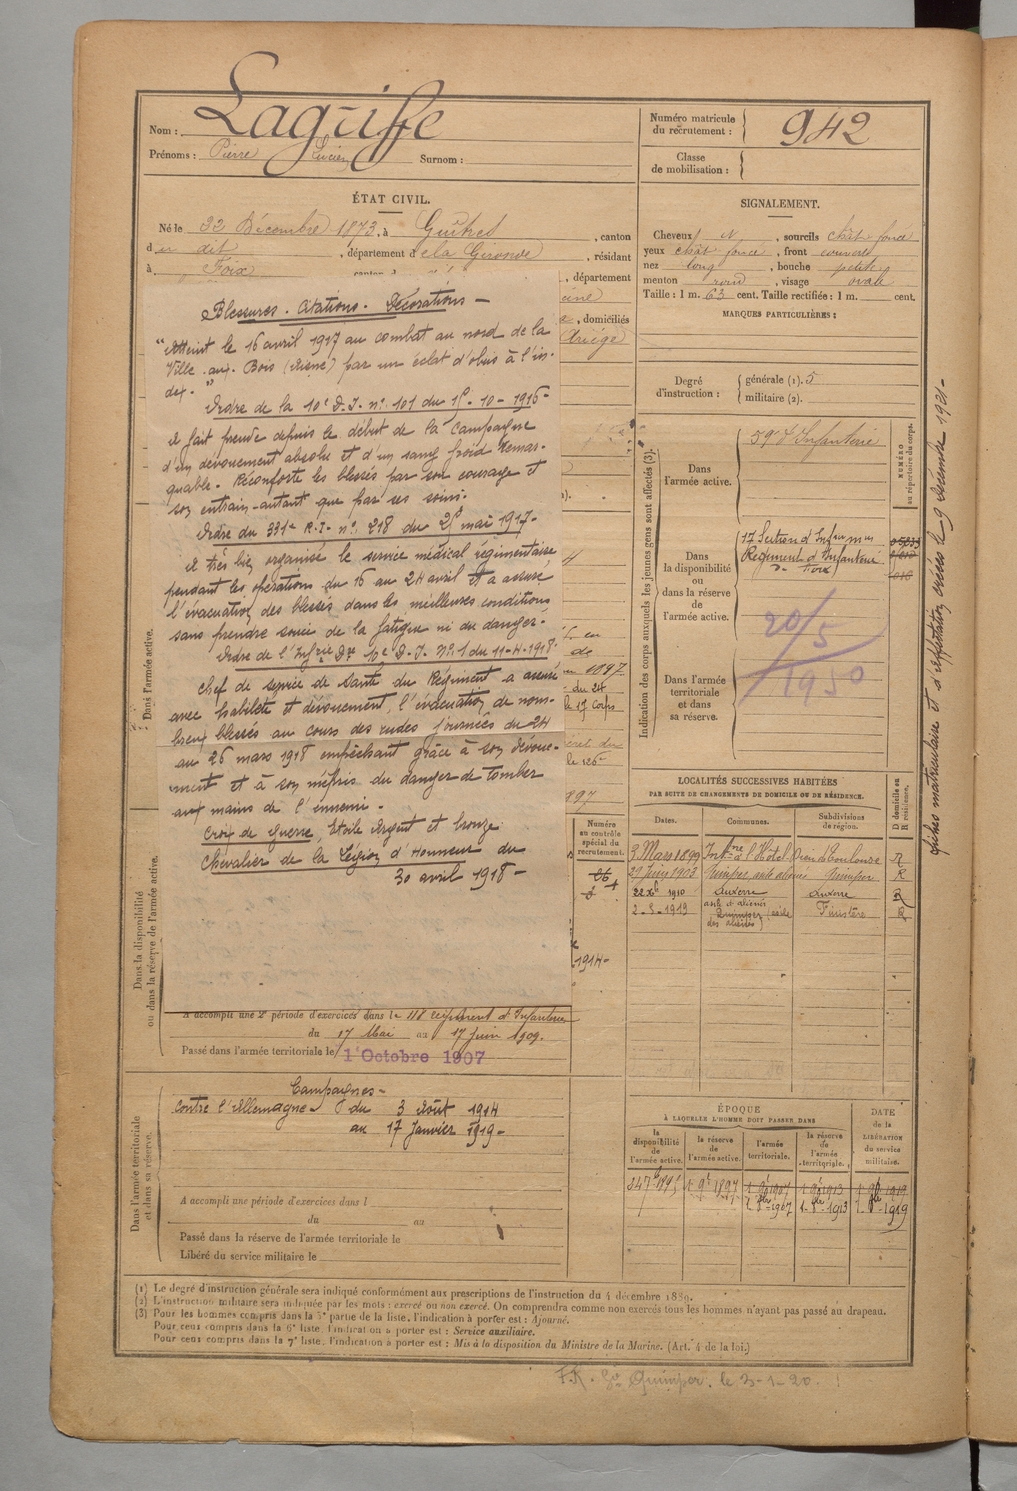 Nom : Lagriffe
Prénoms : Pierre Lucien Surnom :
Numéro matricule
du recrutement : 942
Classe
de mobilisation :
ÉTAT CIVIL.
Né le 22 Décembre 1873, à Guîtres, canton
du dit, département de la Gironde, résidant
à Foix
, département
, domiciliés
Ariège
SIGNALEMENT.
Cheveux N, sourcils chât foncé
yeux chât foncé, front couvert
nez long, bouche petite
menton rond, visage ovale
Taille : 1 m. 63 cent. Taille rectifiée : 1 m. cent.
MARQUES PARTICULIÈRES :
Degré
d'instruction :
générale (1). 5
militaire (2).
Blessures. Citations. Décorations -
"Atteint le 16 avril 1917 au combat au nord de la
Ville-aux-Bois (Aisne) par un éclat d'obus à l'in-
dex."
Ordre de la 10e D.I. n° 101 du 15-10-1916-
A fait preuve depuis le début de la campagne
d'un dévouement absolu et d'un sang froid remar-
quable. Réconforte les blessés par son courage et
son entrain autant que par ses soins.
Ordre du 331e R.I. n° 218 du 25 mai 1917-
A très bien organisé le service médical régimentaire
pendant les opérations du 16 au 24 avril et a assuré
l'évacuation des blessés dans les meilleures conditions
sans prendre souci de la fatigue ni du danger.
Ordre de l'Infrie Dre 10e D.I. N° 1 du 11-4-1918.
Chef de service de santé du Régiment a assuré
avec habileté et dévouement, l'évacuation de nom-
breux blessés au cours des rudes journées du 24
au 26 mars 1918 empêchant grâce à son dévoue-
ment et à son mépris du danger de tomber
aux mains de l'ennemi.
Croix de Guerre, Etoile Argent et bronze
Chevalier de la Légion d'Honneur du
30 avril 1918-
Indication des corps auxquels les jeunes gens sont affectés (3).
Dans
l'armée active.
59e d'Infanterie
NUMÉRO
au répertoire du corps.
Dans
la disponibilité
ou
dans la réserve
de
l'armée active.
17 Section d'Infirmiers
Régiment d'Infanterie
de Foix
20/5
1950
Dans l'armée
territoriale
et dans
sa réserve.
fiches matriculaire et d'affectation créées le 9 Décembre 1921-
LOCALITÉS SUCCESSIVES HABITÉES
PAR SUITE DE CHANGEMENTS DE DOMICILE OU DE RÉSIDENCE.
Dates. Communes. Subdivisions
de région. D domicile ou
R résidence.
3 Mars 1899 Int-ne à l'Hôtel Dieu de Toulouse R
21 Juin 1903 Quimper asile aliénés Quimper R
22 Xb 1910 Auxerre Auxerre R
asile d'aliénés
2-5-1913 Quimper (asile Finistère R
des aliénés)
Numéro
au contrôle
spécial du
recrutement.
1914-
Dans l'armée active.
Dans la disponibilité
ou dans la réserve de l'armée active.
A accompli une 2e période d'exercices dans le 118 régiment d'Infanterie
du 17 Mai au 17 juin 1909.
Passé dans l'armée territoriale le 1 Octobre 1907
Dans l'armée territoriale
et dans sa réserve.
Campagnes-
contre l'Allemagne du 3 Août 1914
au 17 Janvier 1919-
A accompli une période d'exercices dans l
du au
Passé dans la réserve de l'armée territoriale le
Libéré du service militaire le
ÉPOQUE
À LAQUELLE L'HOMME DOIT PASSER DANS
DATE
de la
LIBÉRATION
du service
militaire.
la
disponibilité
de
l'armée active.
la réserve
de
l'armée active.
l'armée
territoriale.
la réserve
de
l'armée
territoriale.
(1) Le degré d'instruction générale sera indiqué conformément aux prescriptions de l'instruction du 4 décembre 1889.
(2) L'instruction militaire sera indiquée par les mots : exercé ou non exercé. On comprendra comme non exercés tous les hommes n'ayant pas passé au drapeau.
(3) Pour les hommes compris dans la 5e partie de la liste, l'indication à porter est : Ajourné.
Pour ceux compris dans la 6e liste, l'indication à porter est : Service auxiliaire.
Pour ceux compris dans la 7e liste, l'indication à porter est : Mis à la disposition du Ministre de la Marine. (Art. 4 de la loi.)
Quimper. le 3-1-20.